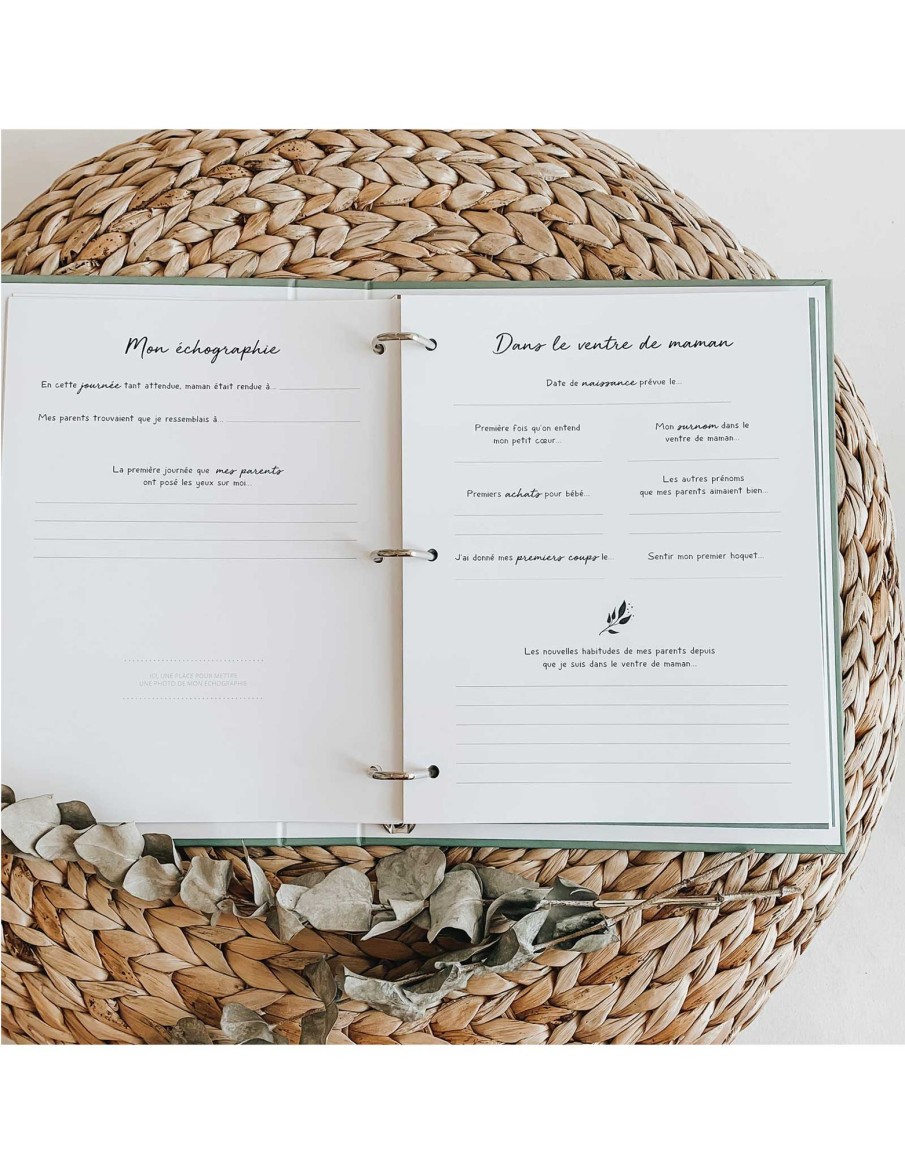 Mon échographie
En cette journée tant attendue, maman était rendue à...
Mes parents trouvaient que je ressemblais à...
La première journée que mes parents
ont posé les yeux sur moi...
ICI, UNE PLACE POUR METTRE
UNE PHOTO DE MON ÉCHOGRAPHIE
Dans le ventre de maman
Date de naissance prévue le...
Première fois qu'on entend
mon petit cœur...
Mon surnom dans le
ventre de maman...
Premiers achats pour bébé...
Les autres prénoms
que mes parents aimaient bien...
J'ai donné mes premiers coups le...
Sentir mon premier hoquet...
Les nouvelles habitudes de mes parents depuis
que je suis dans le ventre de maman...